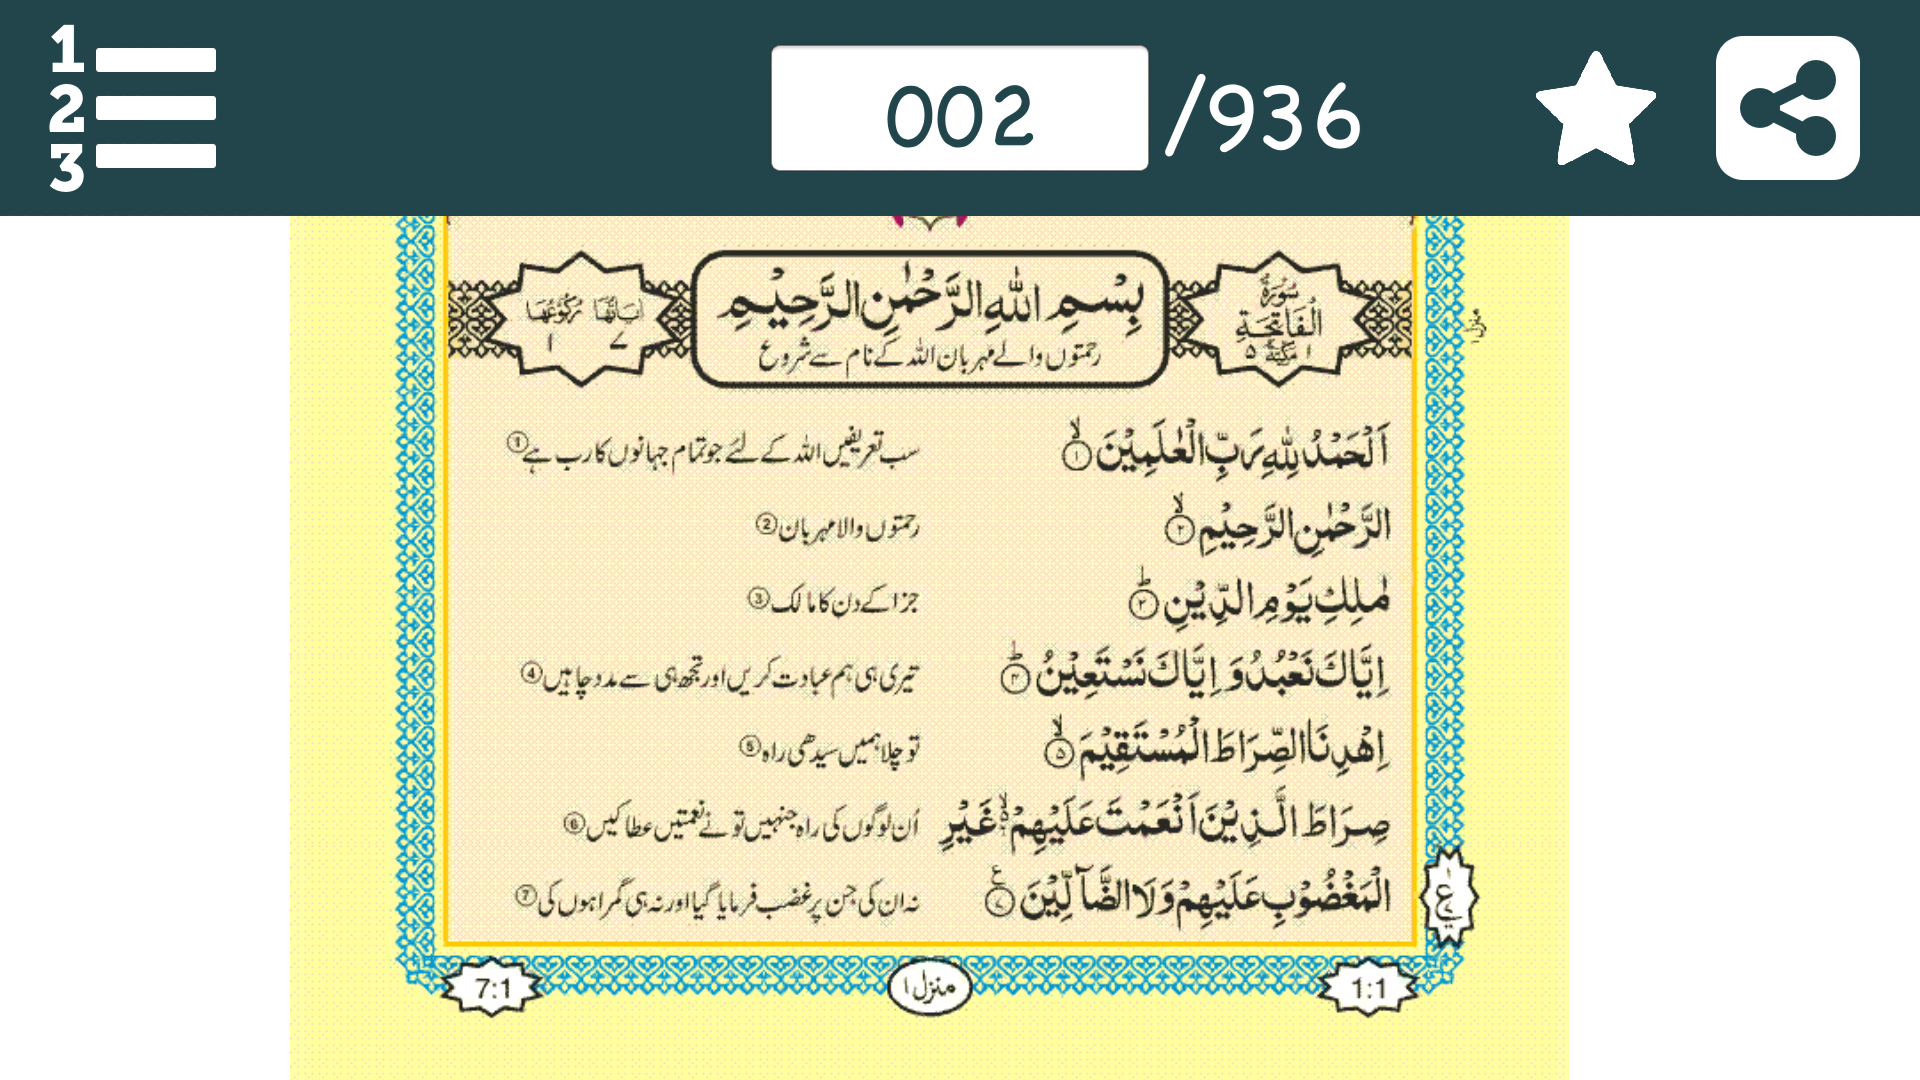 1
2
3
002 /936
سُوْرَةُ
الْفَاتِحَةِ
١ مَکِّیَّةٌ ٥
بِسْمِ اللّٰهِ الرَّحْمٰنِ الرَّحِيْمِ
رحمتوں والے مہربان اللہ کے نام سے شروع
اٰیَاتُهَا رُکُوْعُهَا
٧ ١
اَلْحَمْدُ لِلّٰهِ رَبِّ الْعٰلَمِيْنَ ۙ ١ سب تعریفیں اللہ کے لئے جو تمام جہانوں کا رب ہے ①
الرَّحْمٰنِ الرَّحِيْمِ ۙ ٢ رحمتوں والا مہربان ②
مٰلِكِ يَوْمِ الدِّيْنِ ؕ ٣ جزا کے دن کا مالک ③
اِيَّاكَ نَعْبُدُ وَ اِيَّاكَ نَسْتَعِيْنُ ؕ ٤ تیری ہی ہم عبادت کریں اور تجھ ہی سے مدد چاہیں ④
اِهْدِنَا الصِّرَاطَ الْمُسْتَقِيْمَ ۙ ٥ تو چلا ہمیں سیدھی راہ ⑤
صِرَاطَ الَّذِيْنَ اَنْعَمْتَ عَلَيْهِمْ ۙ غَيْرِ اُن لوگوں کی راہ جنہیں تو نے نعمتیں عطا کیں ⑥
الْمَغْضُوْبِ عَلَيْهِمْ وَلَا الضَّآلِّيْنَ ۧ ٧ نہ ان کی جن پر غضب فرمایا گیا اور نہ ہی گمراہوں کی ⑦
ع
1:1 منزل ١ 7:1